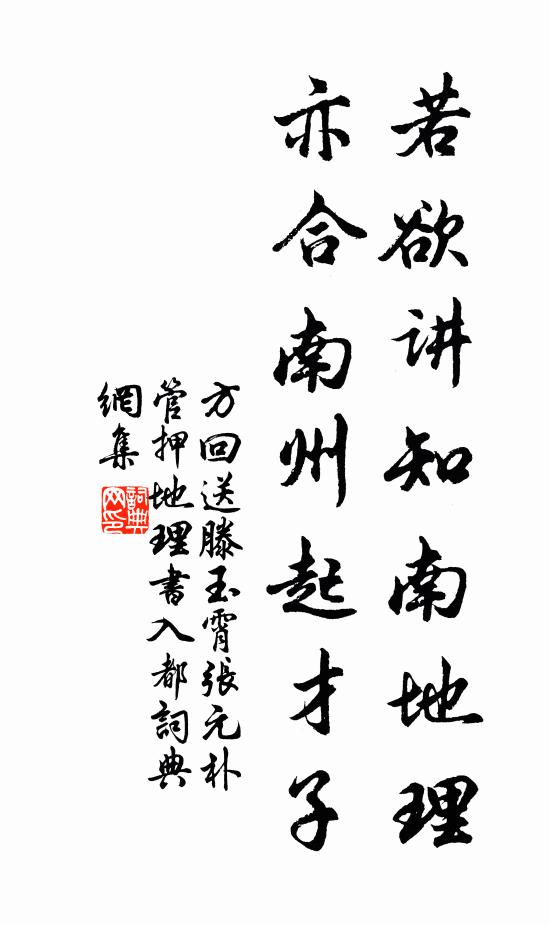 若欲讲知南地理
亦合南州起才子
方回送滕玉霄張元朴
管押地理書入都詞典
網集
詞典
网印